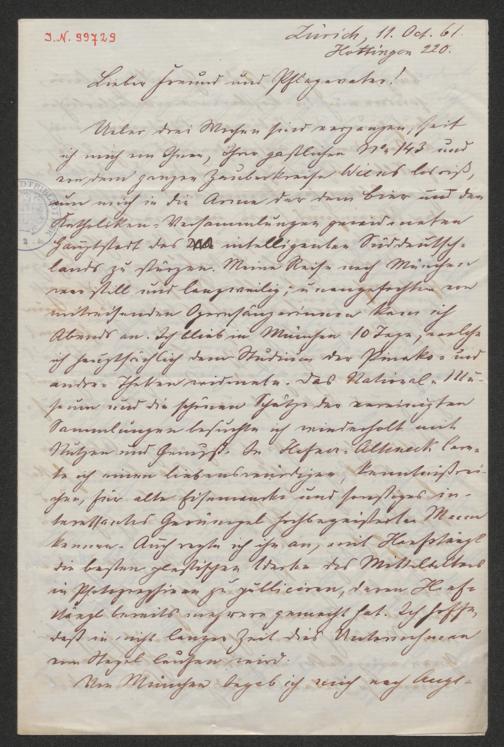 I.N. 99729
Zürich, 11. Oct. 61.
Hottingen 220.
Lieber Freund und Pflegevater!
Ueber drei Wochen sind vergangen, seit
ich mich von Ihnen, Ihrer gastlichen No 143 und
von dem ganzen Zauberkreise Wiens losriß,
um mich in die Arme der dem Bier und den
Katholiken-Versammlungen gewidmeten
Hauptstadt des intelligenten Süddeutsch-
lands zu stürzen. Meine Reise nach München
war still und langweilig; unangefochten von
mitreisenden Opernsängerinnen kam ich
Abends an. Ich blieb in München 10 Tage, welche
ich hauptsächlich dem Studium der Pinako- und
andrer Theken widmete. Das National-Mu-
seum und die schönen Schätze der vereinigten
Sammlungen besuchte ich wiederholt mit
Nutzen und Genuß. In Hefner-Alteneck lern-
te ich einen liebenswürdigen, kenntnißrei-
chen, für alte Eisenwerke und sonstiges in-
teressantes Gerümpel hochbegeisterten Mann
kennen. Auch regte ich ihn an, mit Hanfstängl
die besten plastischen Werke des Mittelalters
in Photographieen zu publiciren, deren Hanf-
stängl bereits mehrere gemacht hat. Ich hoffe,
daß in nicht langer Zeit dies Unternehmen
vom Stapel laufen wird.
Von München begab ich mich nach Augs-